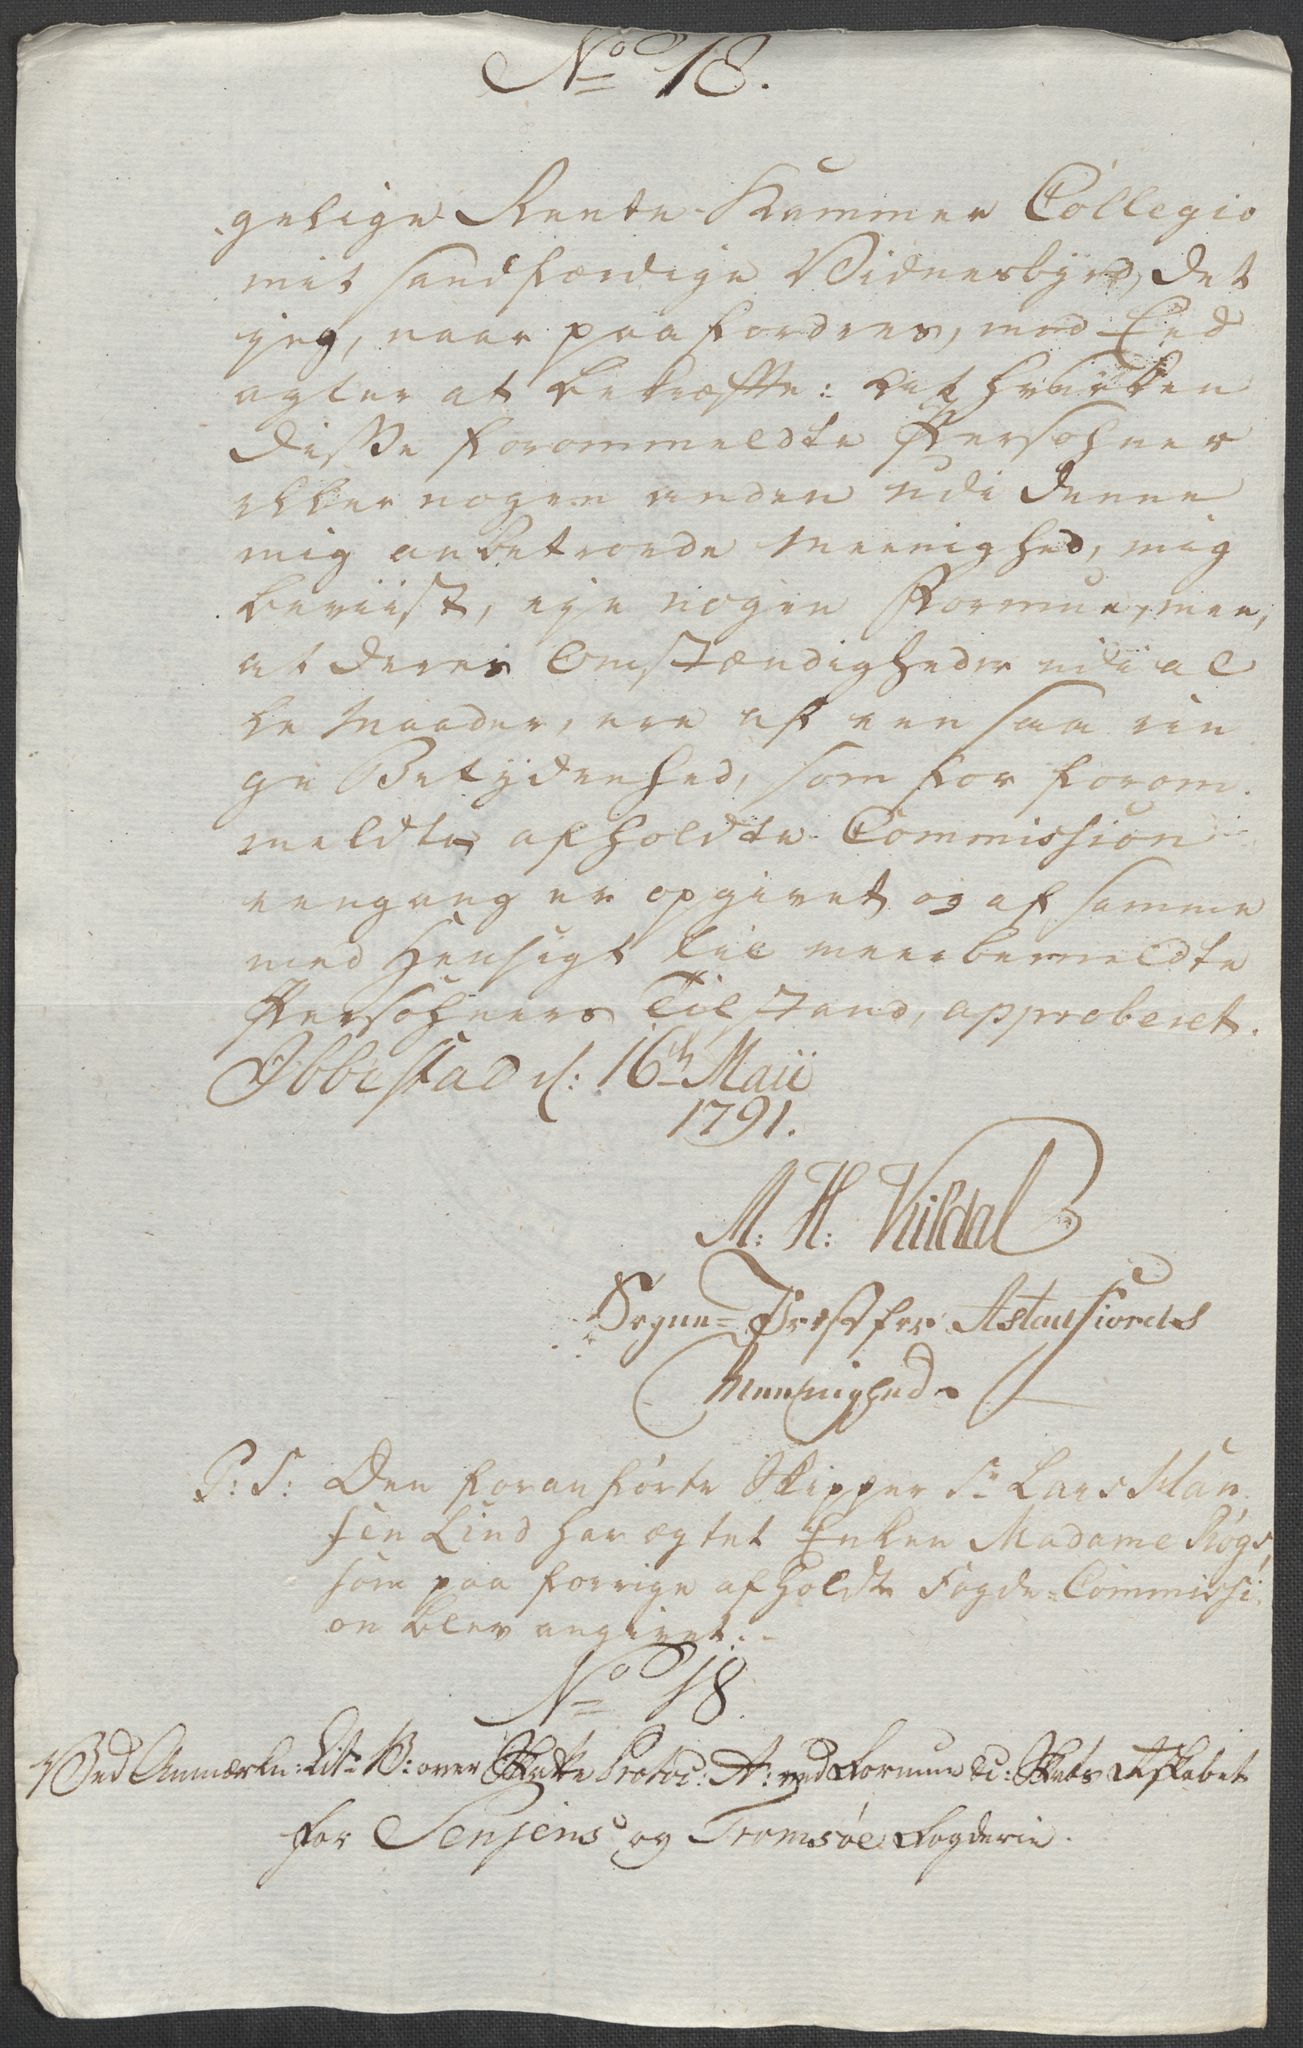 No 18.
gelige Rente-Kammer Collegio
mit sandfærdige Vidnesbyrd, det
jeg, naar paafordres, med Eed
agter at bekræfte: at hverken
disse forommeldte Persohner
eller nogen anden udi denne
mig anbetroede Meenighed, mig
beviist, eye nogen Formue, men,
at deres Omstændigheder udi al
le Maader, ere af een saa rin
ge Betydenhed, som for forom-
meldte afholdte Commission
eengang er opgivet og af samme
med Hensigt til meerbemeldte
Persohners Tilstand, approberet.
Ibbestad d: 16th Maii
1791.
M: H: Kildal
Sogne-Præst for Astafiords
Meenighed.
P: S: Den foranførte Skipper Sr Lars Han
sen Lind har ægtet Enken Madame Røgs,
som paa forrige afholdte Fogde-Commissi-
on blev angivet.
No 18
Ved Anmærkn: Litr. B: over Skatte Protoc: A: ved Formue &c: Skats Afskabet
for Senjens og Tromsøe Fogderie.